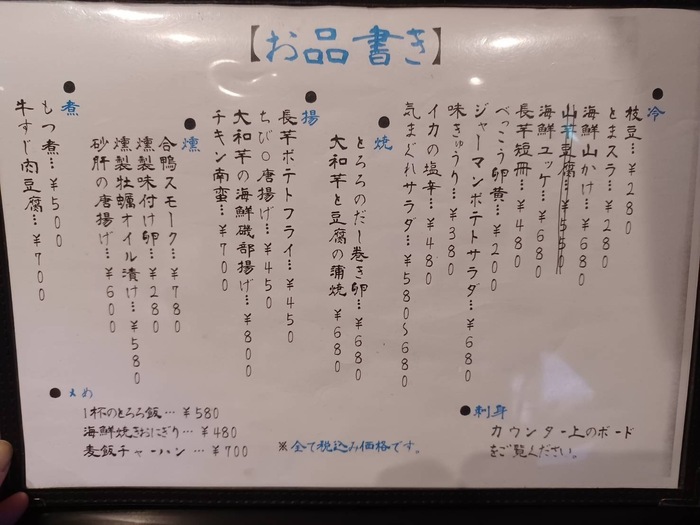 【お品書き】
●冷
枝豆…¥280
とまスラ…¥280
海鮮山かけ…¥680
山芋豆腐…¥550
海鮮ユッケ…¥680
長芋短冊…¥480
べっこう卵黄…¥200
ジャーマンポテトサラダ…¥680
味きゅうり…¥380
イカの塩辛…¥480
気まぐれサラダ…¥580〜680
●焼
とろろのだし巻き卵…¥680
大和芋と豆腐の蒲焼 ¥680
●揚
長芋ポテトフライ…¥450
ちび〇唐揚げ…¥450
大和芋の海鮮磯部揚げ…¥800
チキン南蛮…¥700
●燻
合鴨スモーク…¥780
燻製味付け卵…¥280
燻製牡蠣オイル漬け…¥580
砂肝の唐揚げ…¥600
●煮
もつ煮…¥500
牛すじ肉豆腐…¥700
●〆め
1杯のとろろ飯…¥580
海鮮焼きおにぎり…¥480
麦飯チャーハン…¥700
※全て税込み価格です。
●刺身
カウンター上のボード
をご覧ください。